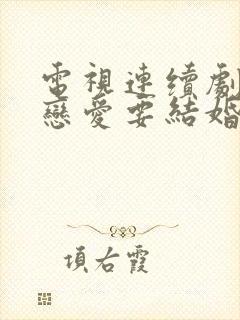 電視連續劇
戀愛要結婚
項右霞